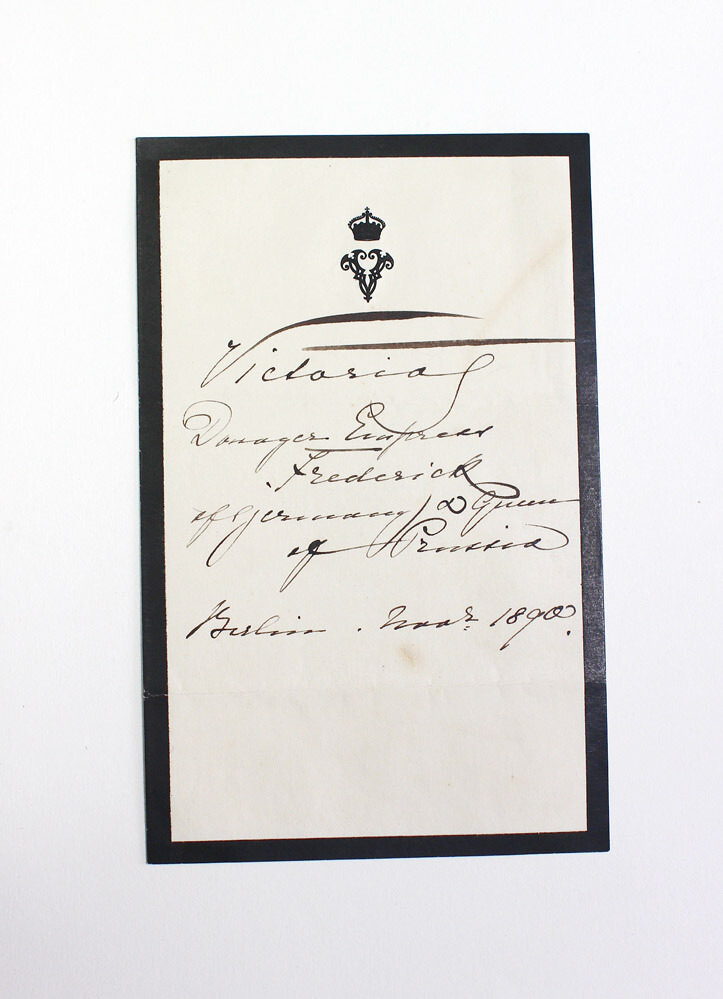 Victoria
Dowager Empress
Frederick
of Germany & Queen
of Prussia
Berlin . Novr. 1890.